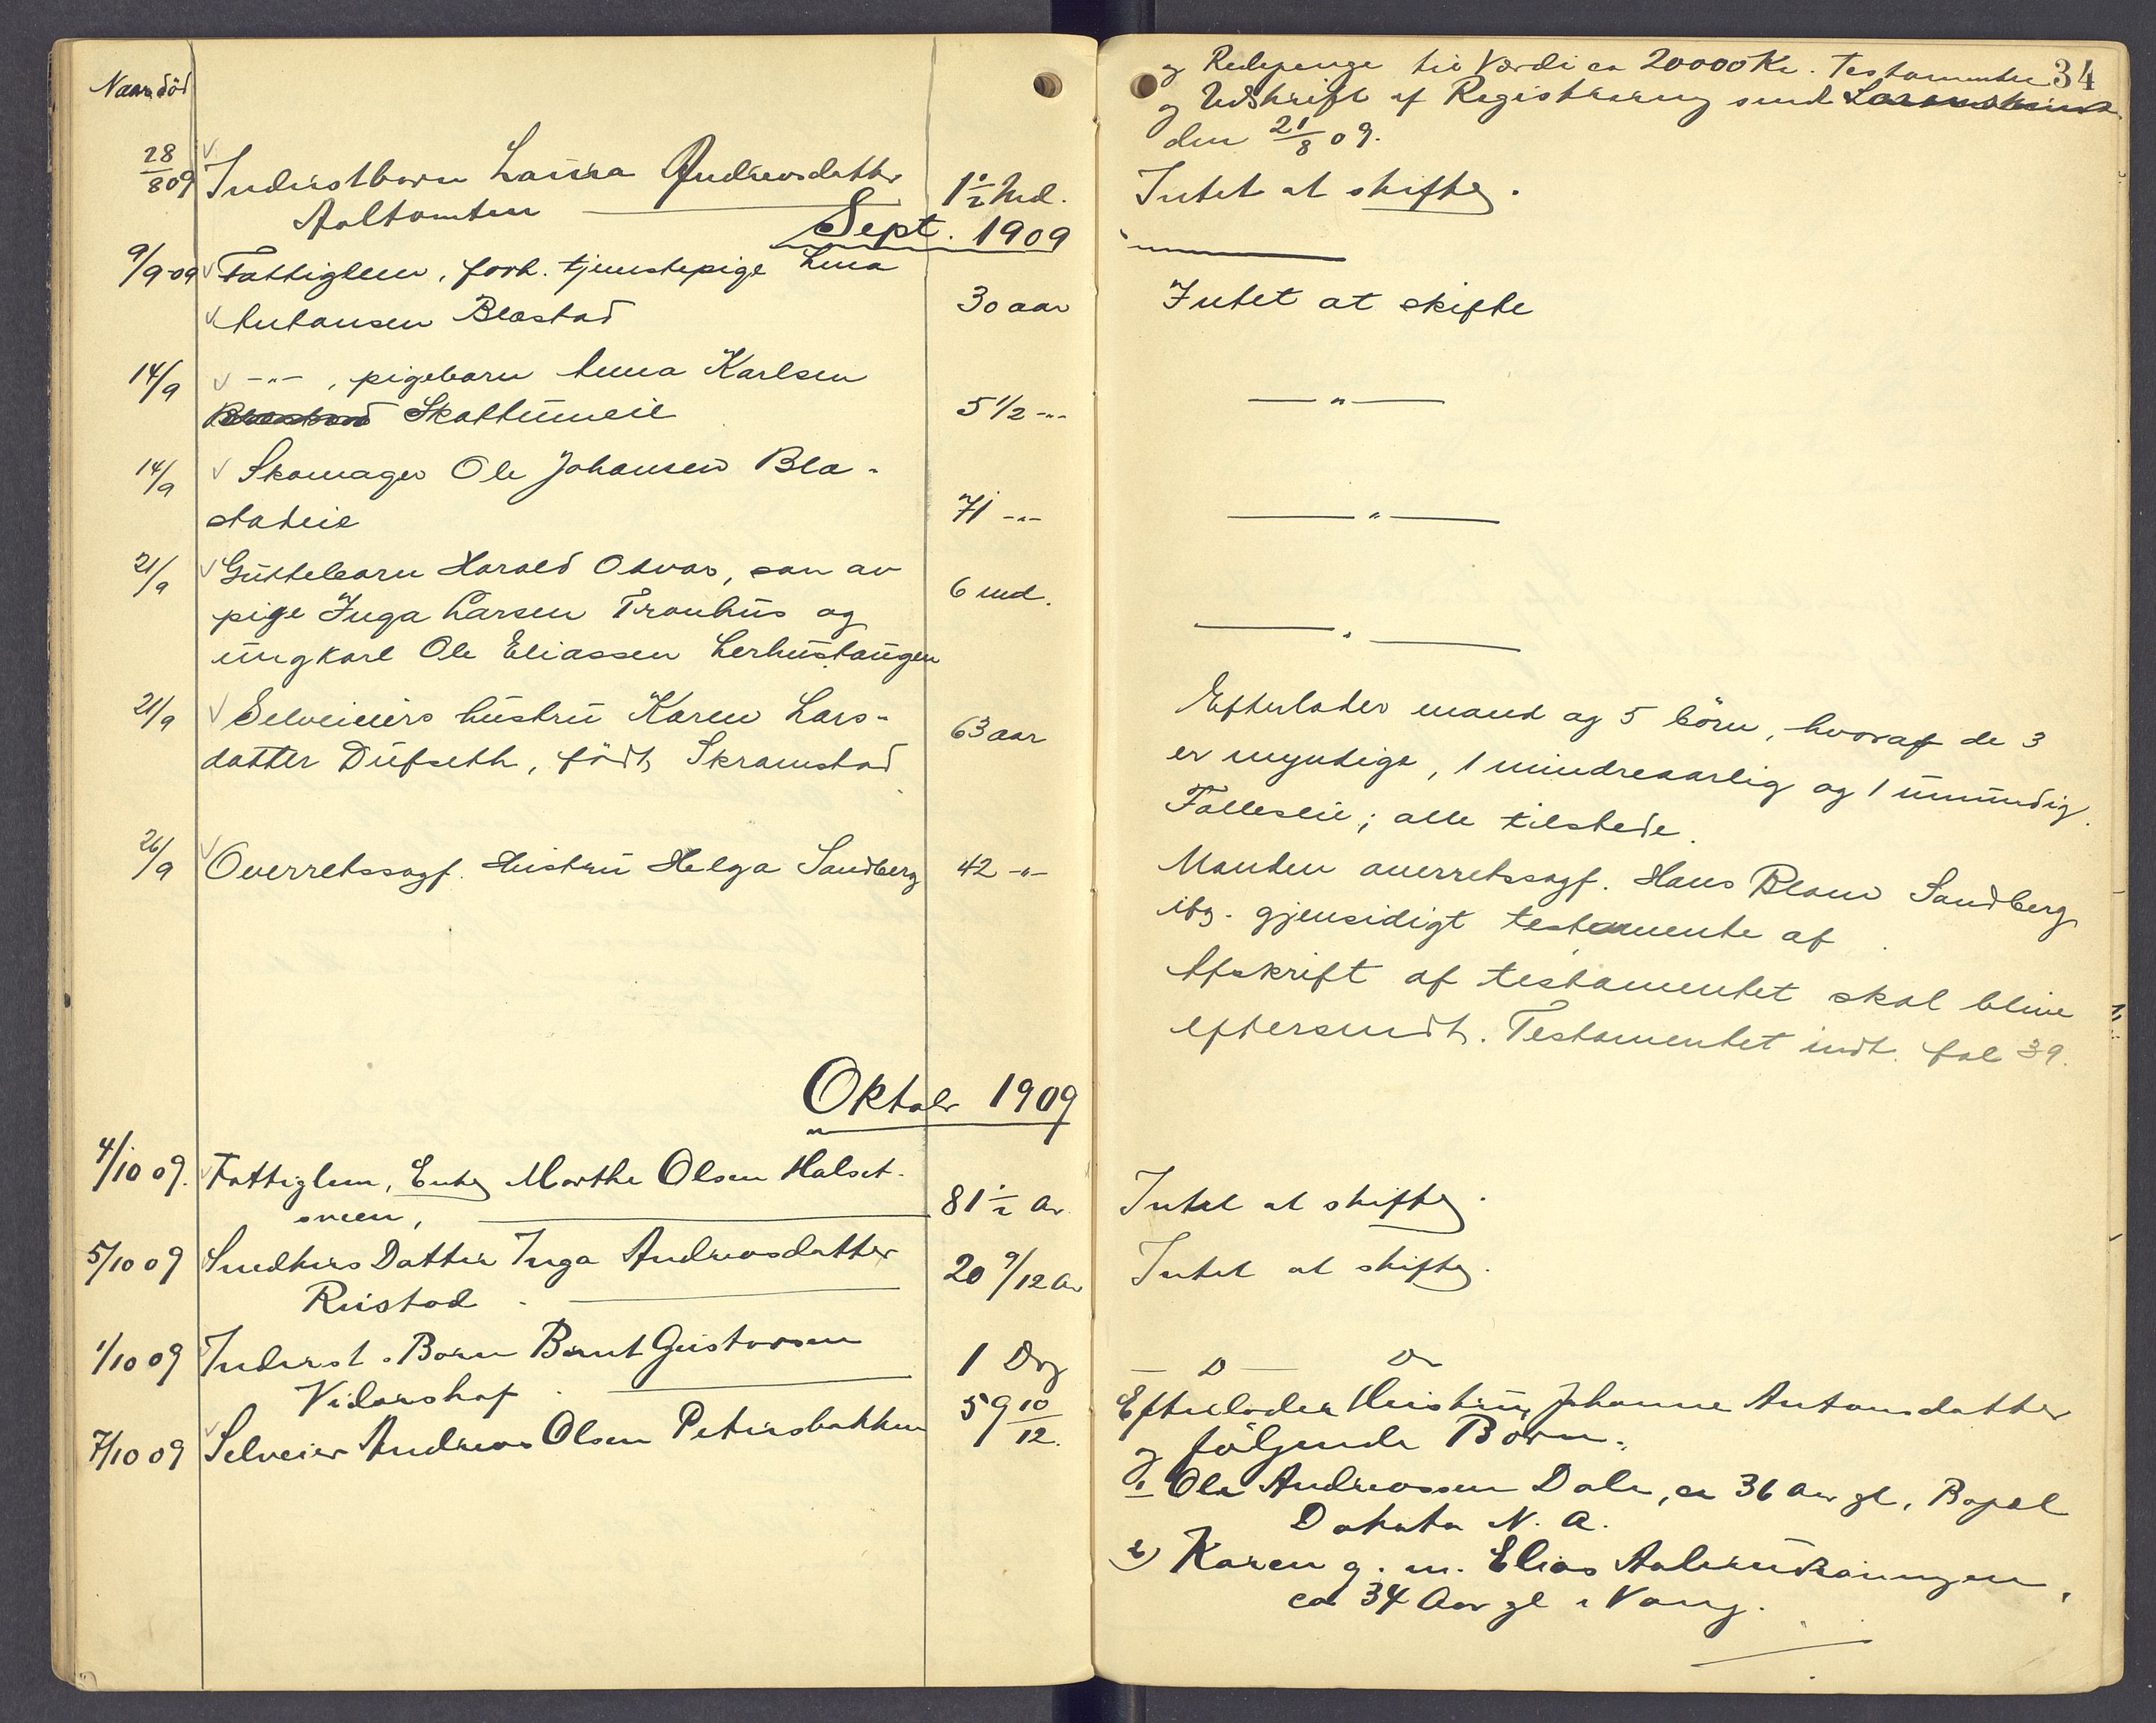 Naar död
28/8 09 Inderstbarn Laura Andreasdatter
Aaltomten 1 1/2 Md.
Sept. 1909
9/9-09 Fattiglem, forh. tjenestepige Lina
Antonsen Blæstad 30 aar
14/9 -"-, pigebarn Anna Karlsen
Skattumeie 5 1/2 -"-
14/9 Skomager Ole Johansen Blæ-
stadeie 71 -"-
21/9 Guttebarn Harald Odvar, søn av
pige Inga Larsen Tronhus og 6 md.
ungkarl Ole Eliassen Lerhushaugen
21/9 Selveiers hustru Karen Lars-
datter Dufseth, födt Skramstad 63 aar
26/9 Overretssagf. Hustru Helga Sandberg 42 -"-
Oktobr 1909
4/10 09. Fattiglem, Enke Marthe Olsen Halset-
sveen, 81 1/2 Ar
5/10 09 Smedkers Datter Inga Andreasdatter
Rustad 20 9/12 Ar
1/10 09 Inderst. Barn Bernt Gustavsen
Vidarshof 1 Dag
7/10 09 Selveier Andreas Olsen Petersbakken 59 10/12.
34
og Redepenge til Værdi ca 20000 Kr. Testamentet
og Udskrift af Registrering sendt
den 21/8 09.
Intet at skifte.
Intet at skifte
— " —
— " —
— " —
Efterlader mand og 5 börn, hvoraf de 3
er myndige, 1 mindreaarlig og 1 umyndig.
Fælleseie; alle tilstede.
Manden overretssagf. Hans Blom Sandberg
iflg. gjensidigt testamente af .
Afskrift af testamentet skal blive
eftersendt. Testamentet indt. fol 39.
Intet at skifte.
Intet at skifte.
— D — Do
Efterlader Hustru Johanne Antonsdatter
og følgende Børn:
1 Ole Andreassen Dale, ca 36 Aar gl,
Dakota N. A.
2) Karen g. m. Elias
ca 34 Aar gl i Vang.